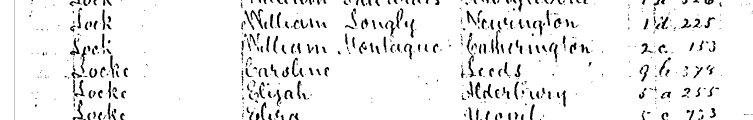 Lock William Longly Newington 1 d 225
Lock William Montague Catherington 2 c 153
Locke Caroline Leeds 9 b 378
Locke Elijah Alderbury 5 a 255
Locke Eliza Yeovil 5 c 733